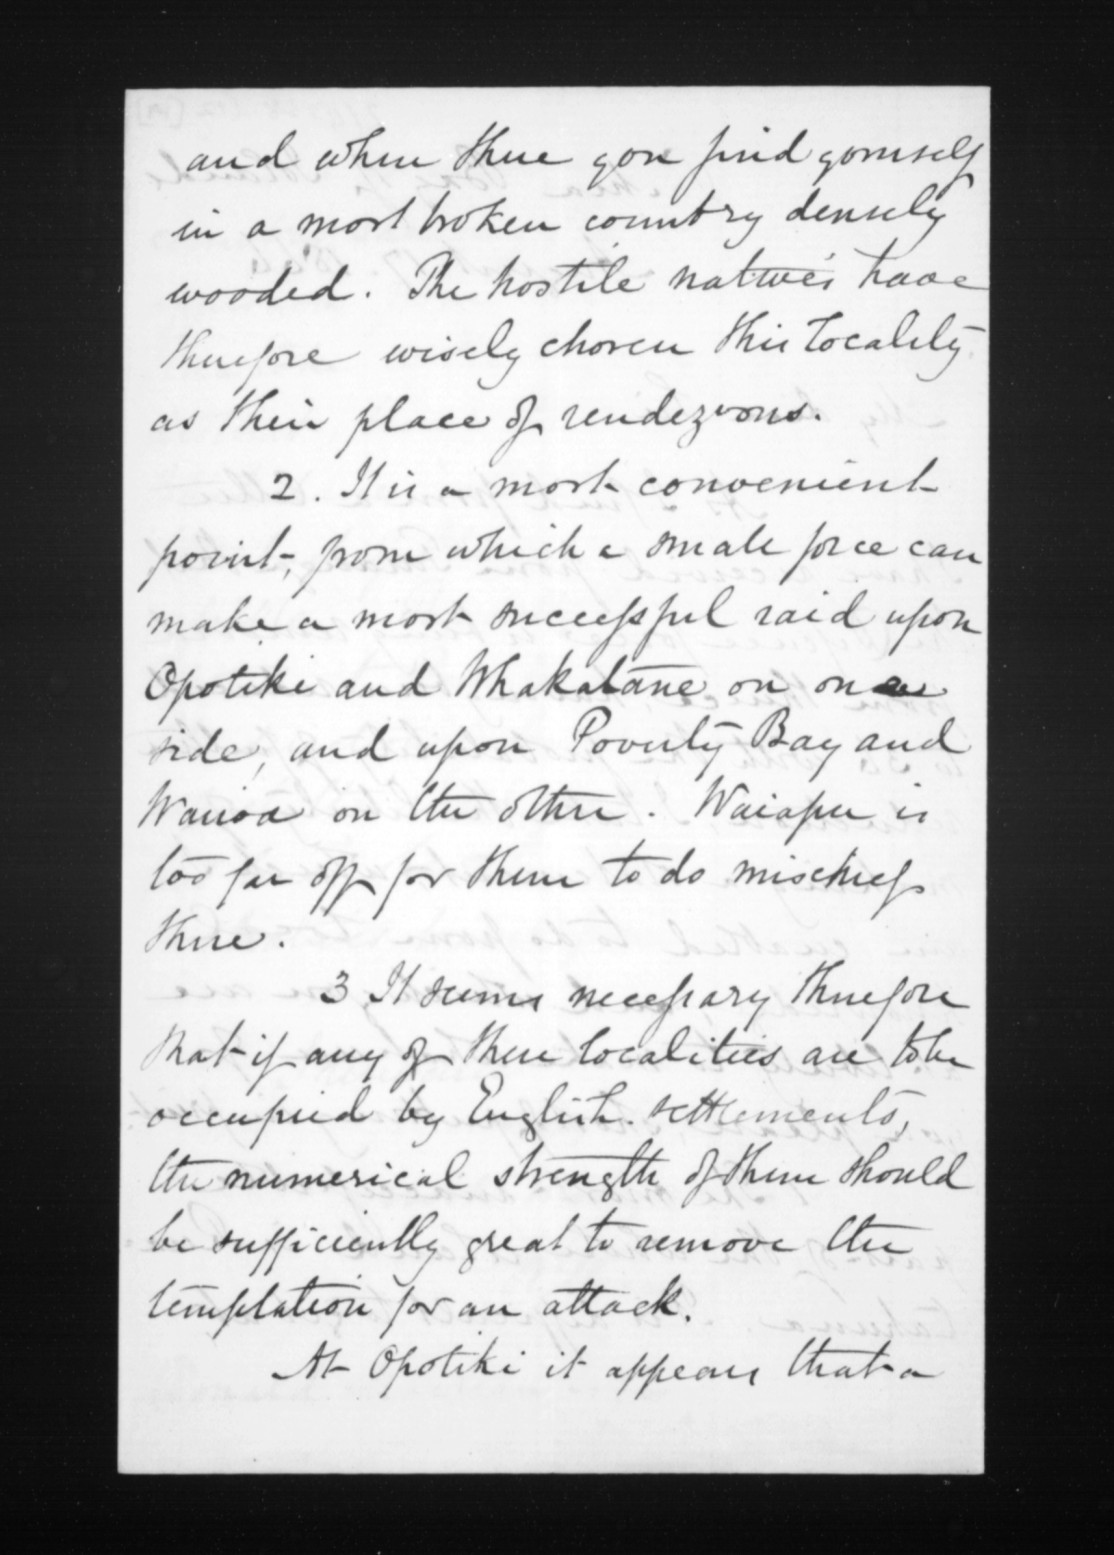 and when there you find yourself
in a most broken country densely
wooded. The hostile natives have
therefore wisely chosen this locality
as their place of rendezvous.
2. It is a most convenient
point, from which a small force can
make a most successful raid upon
Opotiki and Whakatane on one
side, and upon Poverty Bay and
Wairoa on the other. Waiapu is
too far off for them to do mischief
there.
3 It seems necessary therefore
that if any of these localities are to be
occupied by English settlements,
the numerical strength of them should
be sufficiently great to remove the
temptation for an attack.
At Opotiki it appears that a